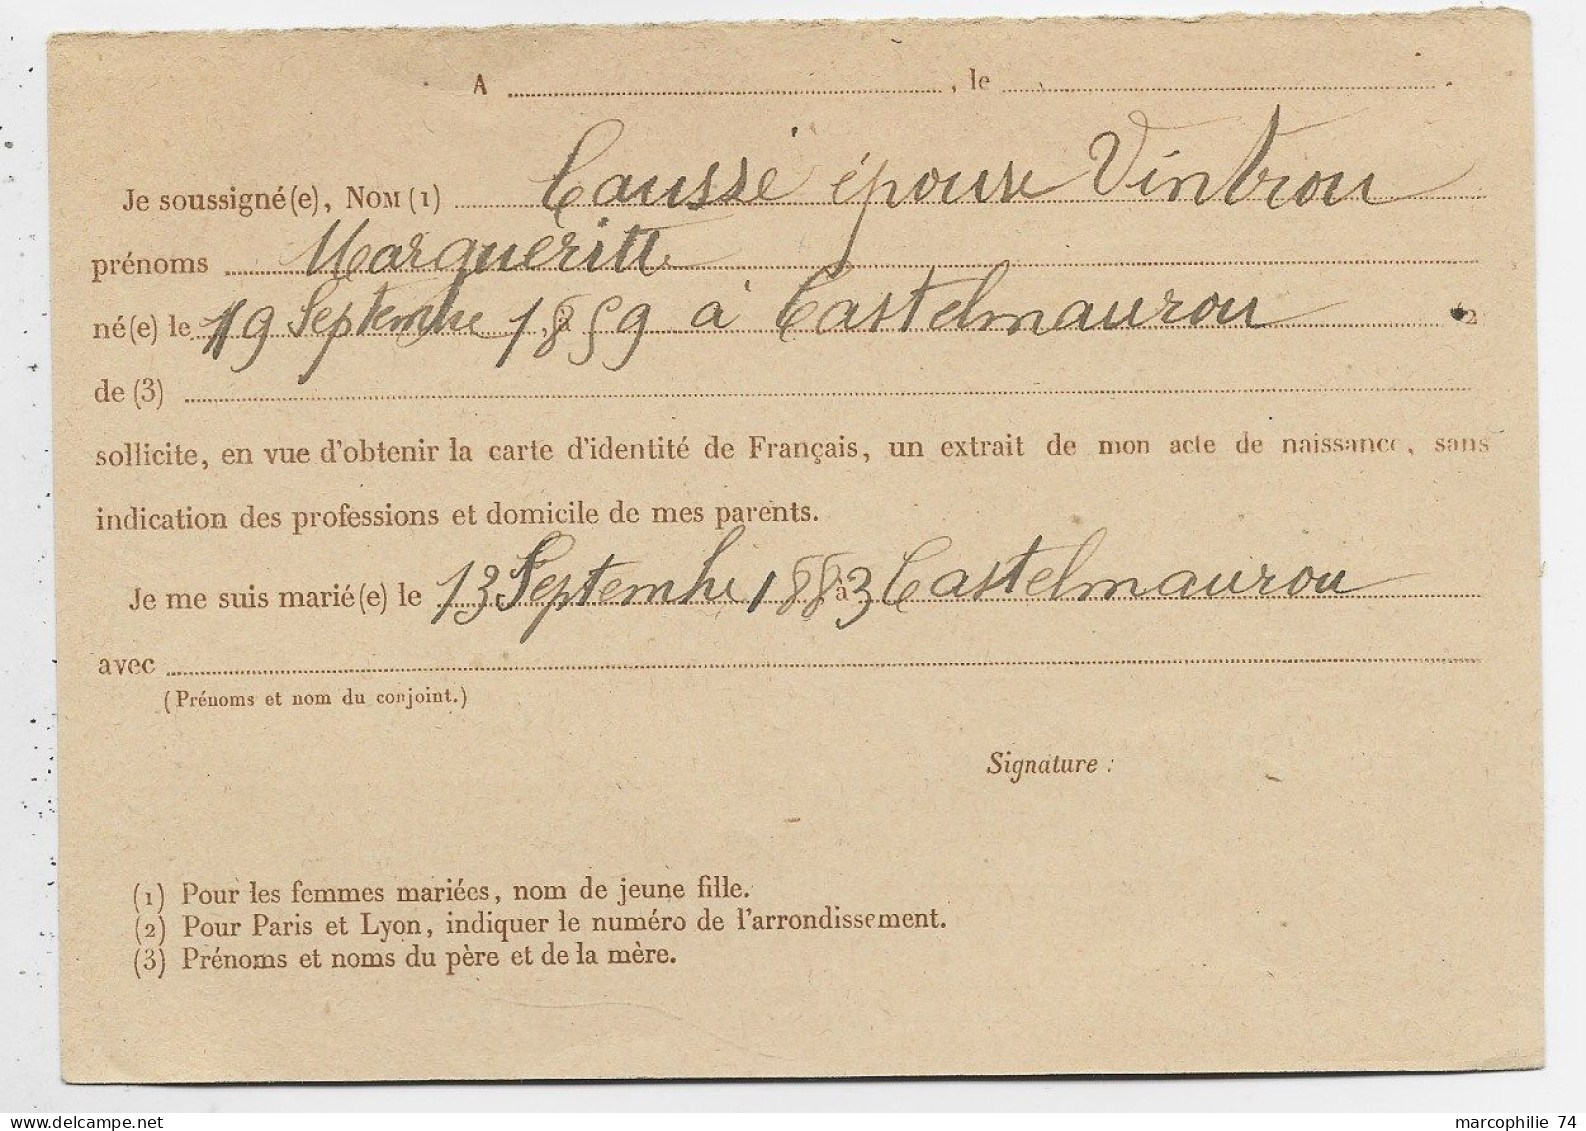 A ........ , le ........ .
Je soussigné(e), NOM (1) Causse épouse Vintrou
prénoms Margueritte
né(e) le 19 Septembre 1859 à Castelmaurou (2)
de (3)
sollicite, en vue d'obtenir la carte d'identité de Français, un extrait de mon acte de naissance, sans
indication des professions et domicile de mes parents.
Je me suis marié(e) le 13 Septembre 1883 à Castelmaurou
avec
(Prénoms et nom du conjoint.)
Signature :
(1) Pour les femmes mariées, nom de jeune fille.
(2) Pour Paris et Lyon, indiquer le numéro de l'arrondissement.
(3) Prénoms et noms du père et de la mère.
marcophilie 74